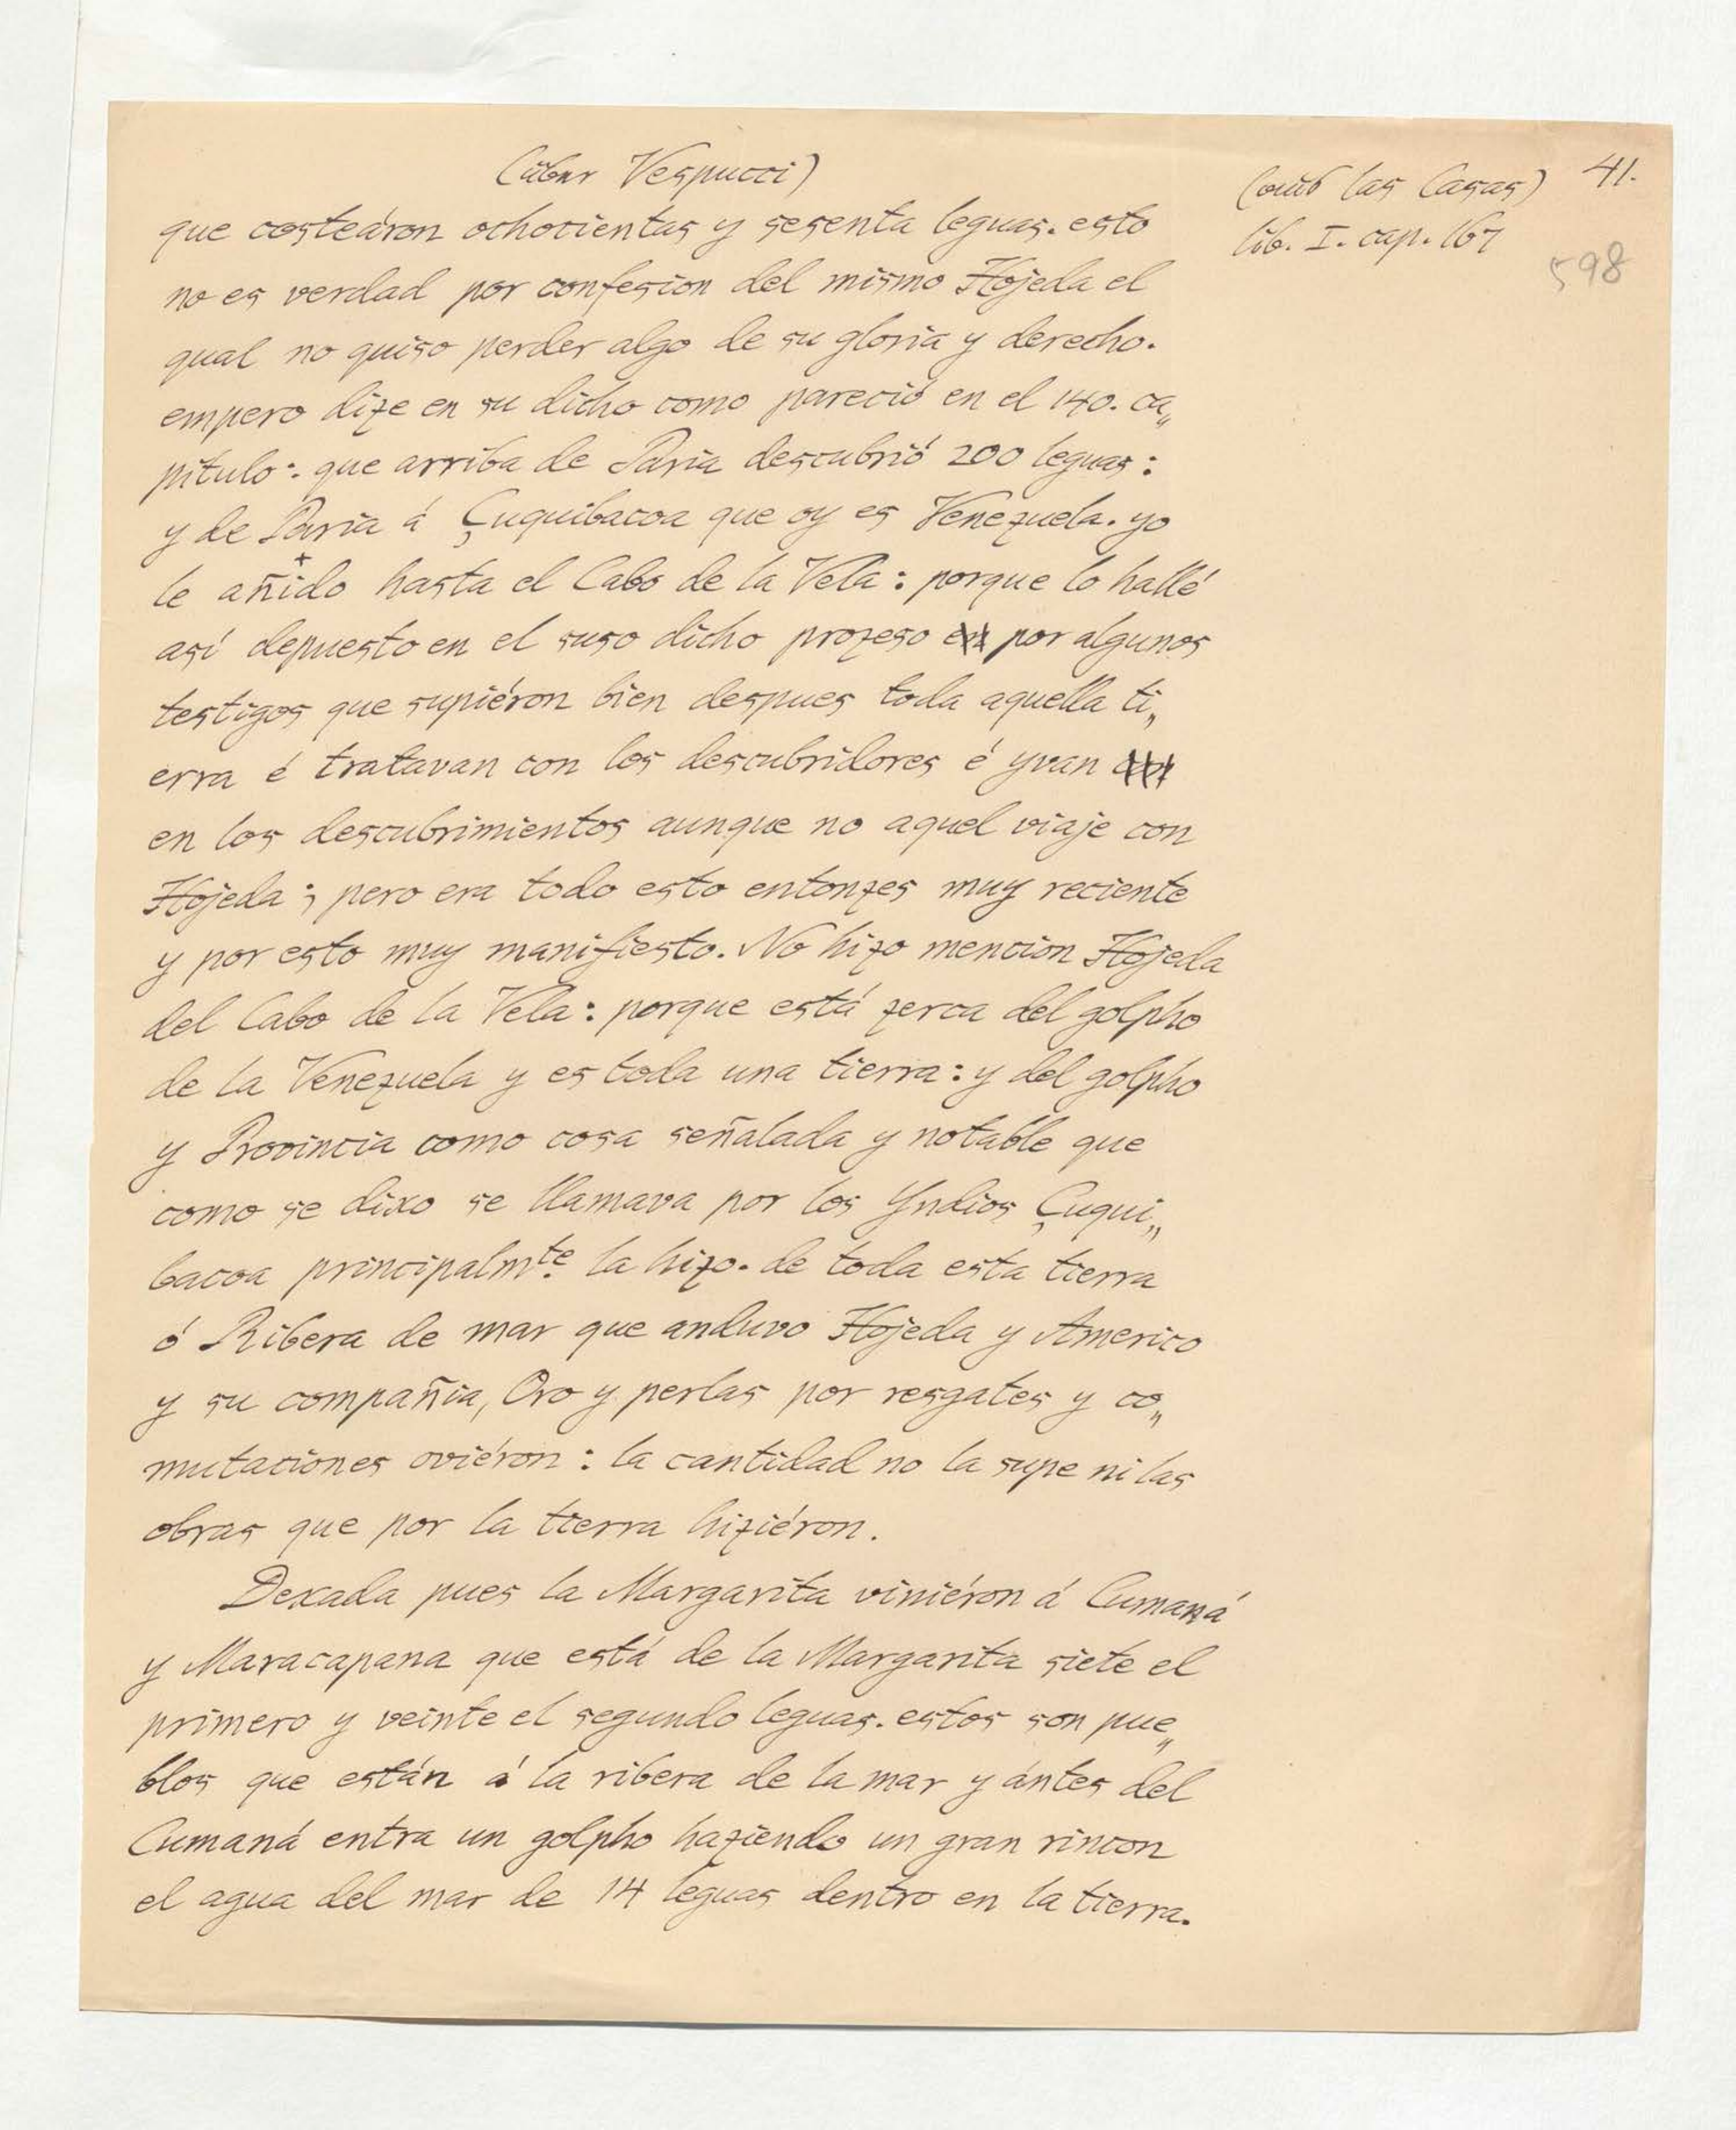 (über Vespucci)
(aus las Casas) 41.
lib. I. cap. 167
598
que costeáron ochocientas y sesenta leguas. esto
no es verdad por confesion del mismo Hojeda el
qual no quiso perder algo de su gloria y derecho.
empero dize en su dicho como pareció en el 140. ca„
pitulo: que arriba de Paria descubrió 200 leguas:
y de Paria á Çuquibacoa que oy es Venezuela. yo
le añido hasta el Cabo de la Vela: porque lo hallé
así depuesto en el suso dicho prozeso por algunos
testigos que supiéron bien despues toda aquella ti„
erra é tratavan con los descubridores é yvan
en los descubrimientos aunque no aquel viaje con
Hojeda; pero era todo esto entonzes muy reciente
y por esto muy manifiesto. No hizo mencion Hojeda
del Cabo de la Vela: porque está zerca del golpho
de la Venezuela y es toda una tierra: y del golpho
y Provincia como cosa señalada y notable que
como se dixo se llamava por los Yndios Çuqui„
bacoa principalmte. la hizo. de toda esta tierra
ó Ribera de mar que anduvo Hojeda y Americo
y su compañia, Oro y perlas por resgates y co„
mutaciones oviéron: la cantidad no la supe ni las
obras que por la tierra hiziéron.
Dexada pues la Margarita viniéron á Cumaná
y Maracapana que está de la Margarita siete el
primero y veinte el segundo leguas. estos son pue„
blos que están á la ribera de la mar y ántes del
Cumaná entra un golpho haziendo un gran rincon
el agua del mar de 14 leguas dentro en la tierra.